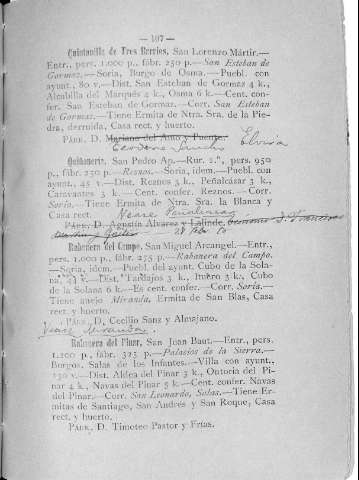 — 107 —
Quintanilla de Tres Barrios, San Lorenzo Mártir.—
Entr., pers. 1.000 p., fábr. 250 p.—San Esteban de
Gormaz.—Soria, Burgo de Osma.—Puebl. con
ayunt., 80 v.—Dist. San Esteban de Gormaz 4 k.,
Alcubilla del Marqués 4 k., Osma 6 k.—Cent. con-
fer. San Esteban de Gormaz.—Corr. San Esteban
de Gormaz.—Tiene Ermita de Ntra. Sra. de la Pie-
dra, derruida, Casa rect. y huerto.
Párr. D. Mariano del Amo y Puente.
Sancho Elvira
San Pedro Ap.—Rur. 2.ª, pers. 950
p., fábr. 250 p. Reznos.—Soria, idem.—Puebl. con
ayunt., 45 v.—Dist. Reznos 3 k., Peñalcázar 3 k.,
Caravantes 3 k.—Cent. confer. Reznos.—Corr.
Soria.—Tiene Ermita de Ntra. Sra. la Blanca y
Casa rect.
Párr. D. Agustín Alvarez y Lalinde.
Rabanera del Campo, San Miguel Arcangel.—Entr.,
pers. 1.000 p., fábr. 275 p.—Rabanera del Campo.
—Soria, idem.—Puebl. del ayunt. Cubo de la Sola-
na, v.—Dist. Tardajos 3 k., Ituero 3 k., Cubo
de la Solana 6 k.—Es cent. confer.—Corr. Soria.—
Tiene anejo Miranda, Ermita de San Blas, Casa
rect. y huerto.
Párr. D. Cecilio Sanz y Almajano.
Véase Miranda.
Rabanera del Pinar, San Juan Baut.—Entr., pers.
1.200 p., fábr. 325 p.—Palacios de la Sierra.—
Burgos, Salas de los Infantes.—Villa con ayunt.,
v.—Dist. Aldea del Pinar 3 k., Ontoria del Pi-
nar 4 k., Navas del Pinar 5 k.—Cent. confer. Navas
del Pinar.—Corr. San Leonardo, Salas.—Tiene Er-
mitas de Santiago, San Andrés y San Roque, Casa
rect. y huerto.
Párr. D. Timoteo Pastor y Frías.